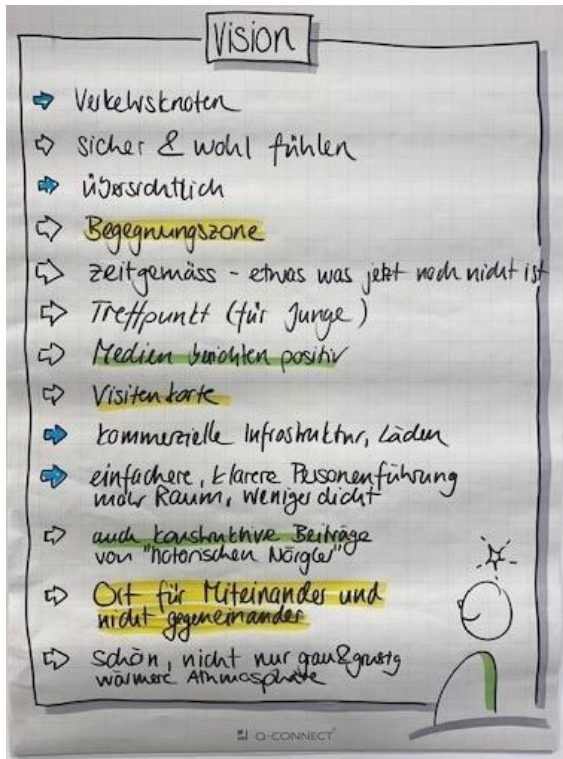 Vision
Verkehrsknoten
sicher & wohl fühlen
übersichtlich
Begegnungszone
zeitgemäss - etwas was jetzt noch nicht ist
Treffpunkt (für Junge)
Medien berichten positiv
Visitenkarte
kommerzielle Infrastruktur, Läden
einfachere, klarere Personenführung
mehr Raum, weniger dicht
auch konstruktive Beiträge
von "notorischen Nörgler"
Ort für Miteinander und
nicht gegeneinander
schön, nicht nur grau & grusig
wärmere Athmosphäre
Q-CONNECT